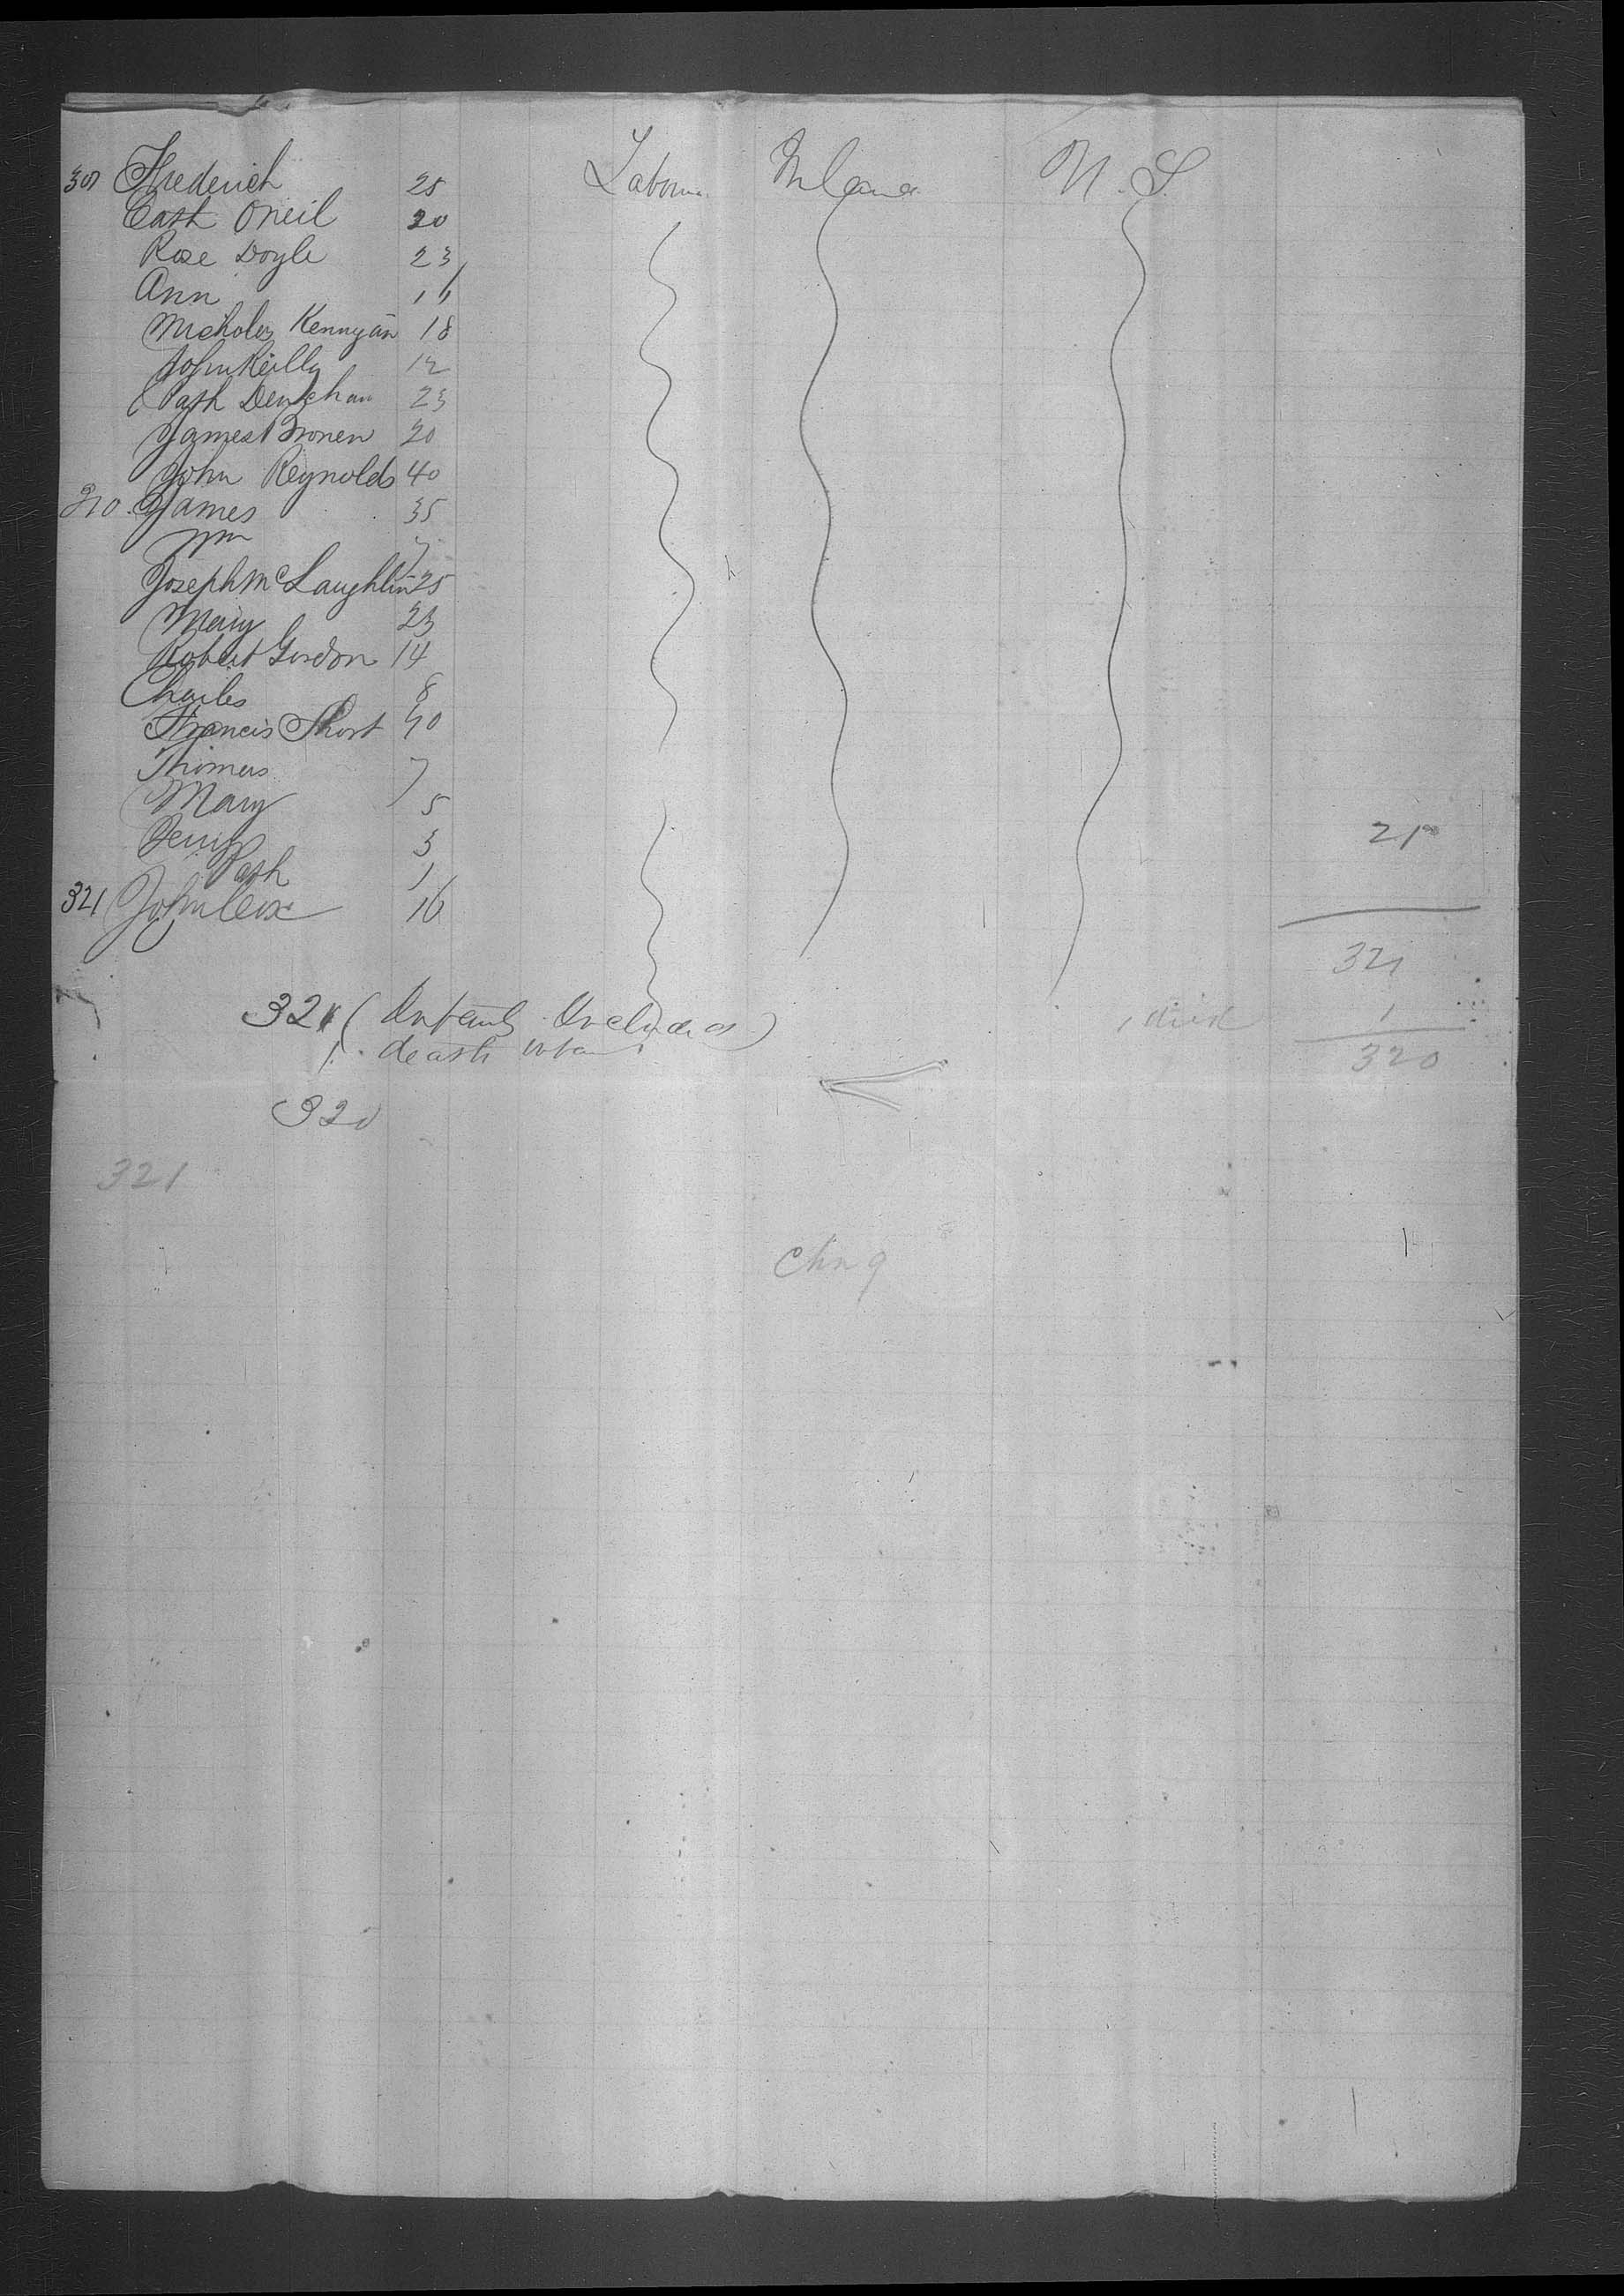 301 Frederich 25 Laborer Ireland U. S.
Cath Oneil 20
Rose Doyle 23
Ann 16
Nicholes Kennyan 18
John Reilly 12
Cath Denighan 23
James Bronen 20
John Reynolds 40
310 James 35
Wm 7
Joseph McLaughlin 25
Mary 23
Robert Gordon 14
Charles 8
Francis Short 40
Thomas 7
Mary 5
Perry 3
Cath 1
321 John Cox 16
21
321
321 (Infants Included)
1 died 1
1 death infant
320
320
321